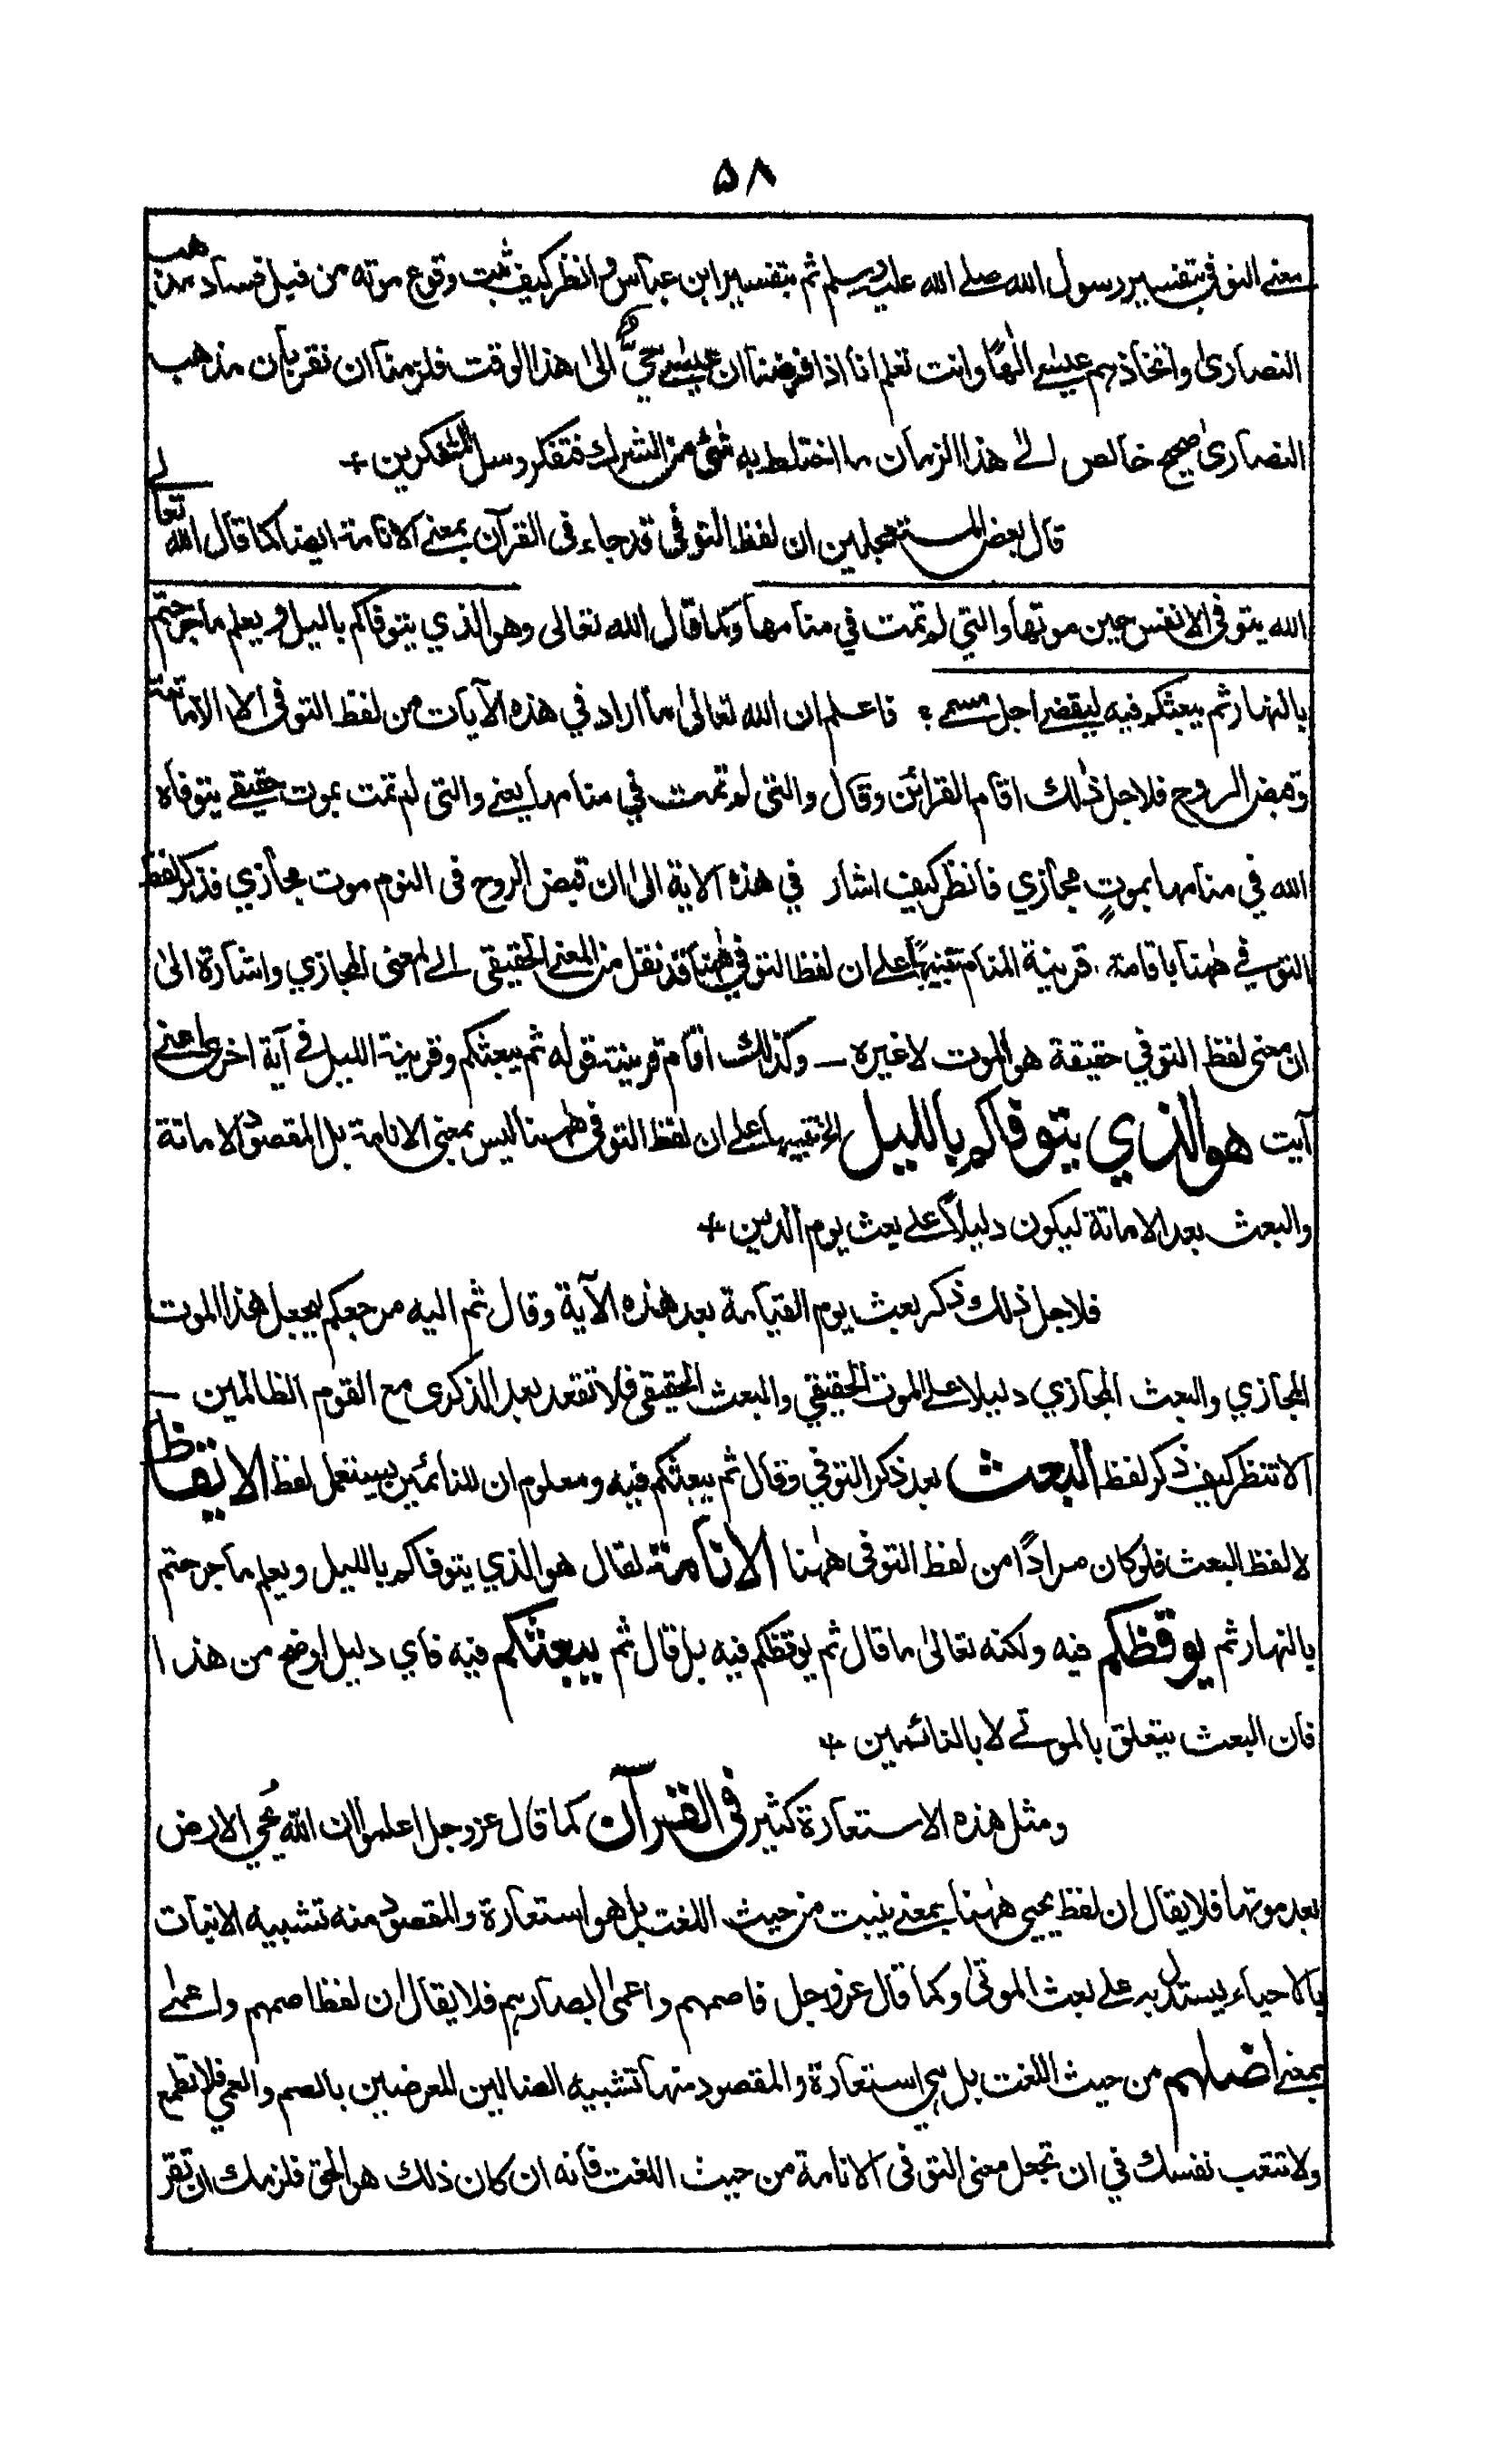 ۵۸
معنے التوفی بتفسیر رسول الله صلے الله علیہ وسلم ثم بتفسیر ابن عباس وانظر کیف ثبت وقوع موته من قبل فساد مذہب
النصاریٰ واتخاذہم عیسے الٰھًا وانت تعلم انا اذا فرضنا ان عیسےٰ حیٌّ الیٰ ھذا الوقت فلزمنا ان نقر بان مذھب
النصاریٰ صحیح خالص الےٰ ھذا الزمان ما اختلط به شیٔ من الشرک فتفکر وسل المتفکرین +
قال بعض المستعجلین ان لفظ التوفّی قد جاء فی القرآن بمعنے الانامة ایضا کما قال الله تعالےٰ
الله یتوفی الانفس حین موتھا والتی لم تمت في منامھا وکما قال الله تعالی وھو الذي یتوفاکم بالیل و یعلم ما جرحتم
بالنہار ثم یبعثکم فیه لیقضےٰ اجل مسمےٰ ؛ فاعلم ان الله تعالیٰ ما اراد في ھذہ الآیات من لفظ التوفی الا الاماتة
وقبض الروح فلاجل ذٰلك اقام القرائن وقال والتی لم تمت في منامہا یعنے والتی لم تمت بموت حقیقے یتوفاہ
الله في منامہا بموتٍ مجازي فانظر کیف اشار في ھذہ الآیة الیٰ ان قبض الروح فی النوم موت مجازي فذکر لفظ
التوفے ھٰہنا باقامة قرینة المنام تنبیہًا علے ان لفظ التوفي ھٰہنا قد نقل من المعنے الحقیقی الے المعنی المجازي واشارة الیٰ
ان معنی لفظ التوفي حقیقة ھو الموت لا غیرہ — وکذٰلك اقام قرینة قوله ثم یبعثکم وقرینة اللیل فے آیة اخریٰ اعنے
آیت ھو الذي یتوفاکم باللیل الخ تنبیہا علے ان لفظ التوفی ھٰہنا لیس بمعنی الانامة بل المقصود الاماتة
والبعث بعد الاماتة لیکون دلیلاً علے بعث یوم الدین +
فلاجل ذٰلك ذکر بعث یوم القیامة بعد ھذہ الآیة وقال ثم الیه مرجعکم لیجعل ھذا الموت
المجازي والبعث المجازي دلیلا علے الموت الحقیقي والبعث الحقیقی فلا تقعد بعد الذکریٰ مع القوم الظالمین —
الا تنظر کیف ذکر لفظ البعث بعد ذکر التوفي وقال ثم یبعثکم فیه ومعلوم ان للنائمین یستعمل لفظ الایقاظ
لا لفظ البعث فلو کان مرادًا من لفظ التوفی ھٰہنا الانامة لقال ھو الذي یتوفاکم باللیل ویعلم ما جرحتم
بالنہار ثم یوقظکم فیه ولکنه تعالیٰ ما قال ثم یوقظکم فیه بل قال ثم یبعثکم فیه فاي دلیل اوضح من ھذا
فان البعث یتعلق بالموتےٰ لا بالنائمین +
ومثل ھذہ الاستعارة کثیر فی القرآن کما قال عزوجل اعلموا ان الله یُحي الارض
بعد موتہا فلا یقال ان لفظ یحیي ھٰہنا بمعنے ینبت من حیث اللغت بل ھو استعارة والمقصود منه تشبیه الانبات
بالاحیاء لیستدل به علےٰ بعث الموتیٰ وکما قال عزوجل فاصمہم واعمیٰ ابصارہم فلا یقال ان لفظ اصمہم واعمےٰ
بمعنےٰ اضلہم من حیث اللغت بل ہي استعارة والمقصود منہا تشبیه الضالین المعرضین بالصم والعمي فلا تطمع
ولا تتعب نفسك في ان تجعل معنی التوفی الانامة من حیث اللغت فانه ان کان ذلك ھو الحق فلزمك ان تقر